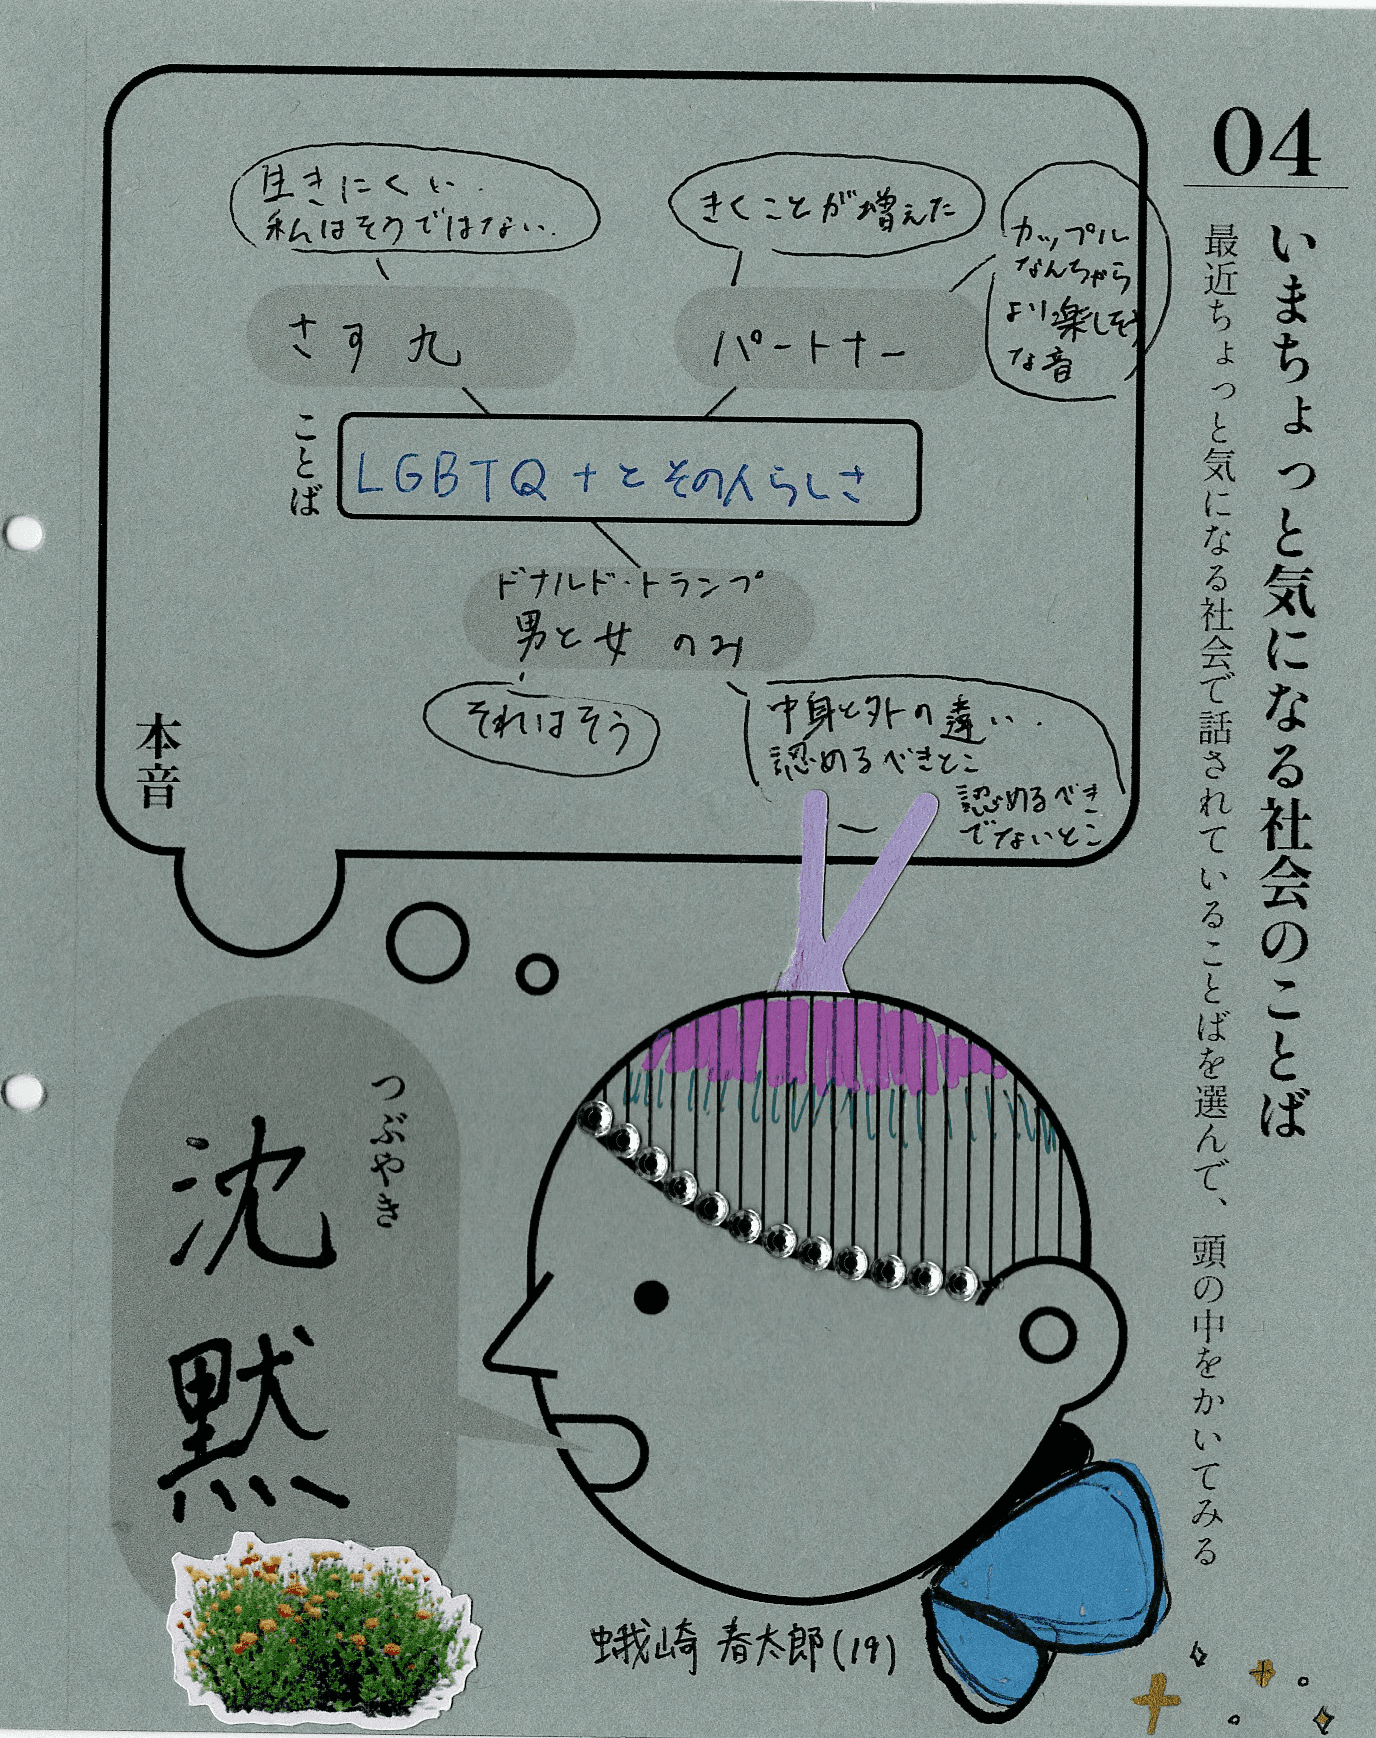 04
いまちょっと気になる社会のことば
最近ちょっと気になる社会で話されていることばを選んで、頭の中をかいてみる
生きにくい.
私はそうではない.
きくことが増えた
カップル
なんちゃら
より楽しそう
な音
さす九
パートナー
ことば
LGBTQ+とその人らしさ
ドナルド・トランプ
男と女のみ
それはそう
中身と外の違い.
認めるべきとこ
認めるべき
でないとこ
本音
つぶやき
沈黙
蛾崎 春太郎(19)